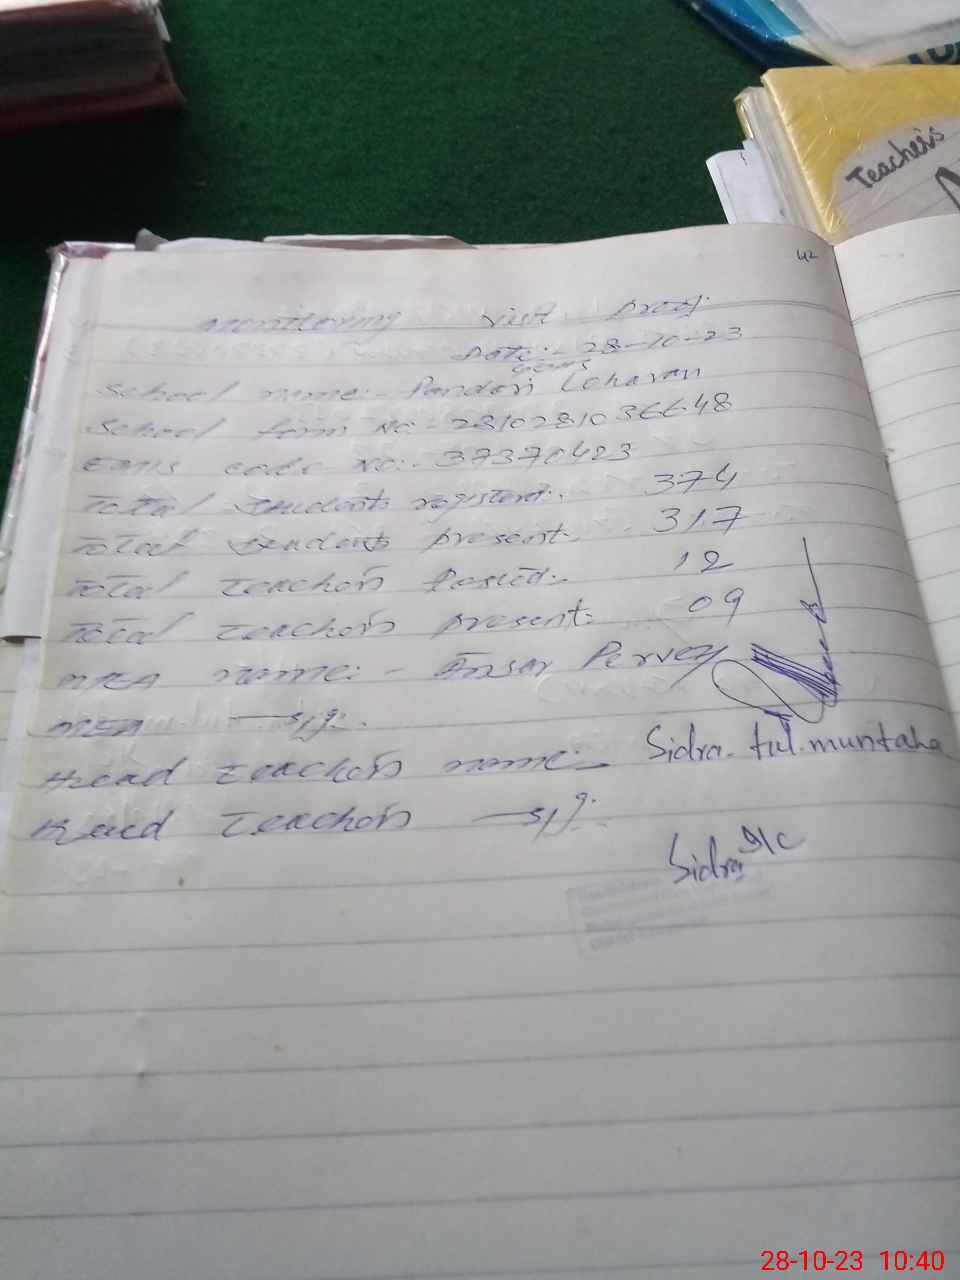 Teacher's
42
Monitoring Visit Proof
Date:- 28-10-23
GGMS
School name:- Pandori Loharan
School form No:- 2810281036648
EMIS code No:- 37370423
Total Students registerd:. 374
Total Students present:. 317
Total Teachers Posted:. 12
Total Teachers present:. 09
MEA name:- Ansar Pervez
MEA sig:.
Head Teachers name:- Sidra-tul-muntaha
Head Teachers sig:.
Sidra I/C
28-10-23 10:40